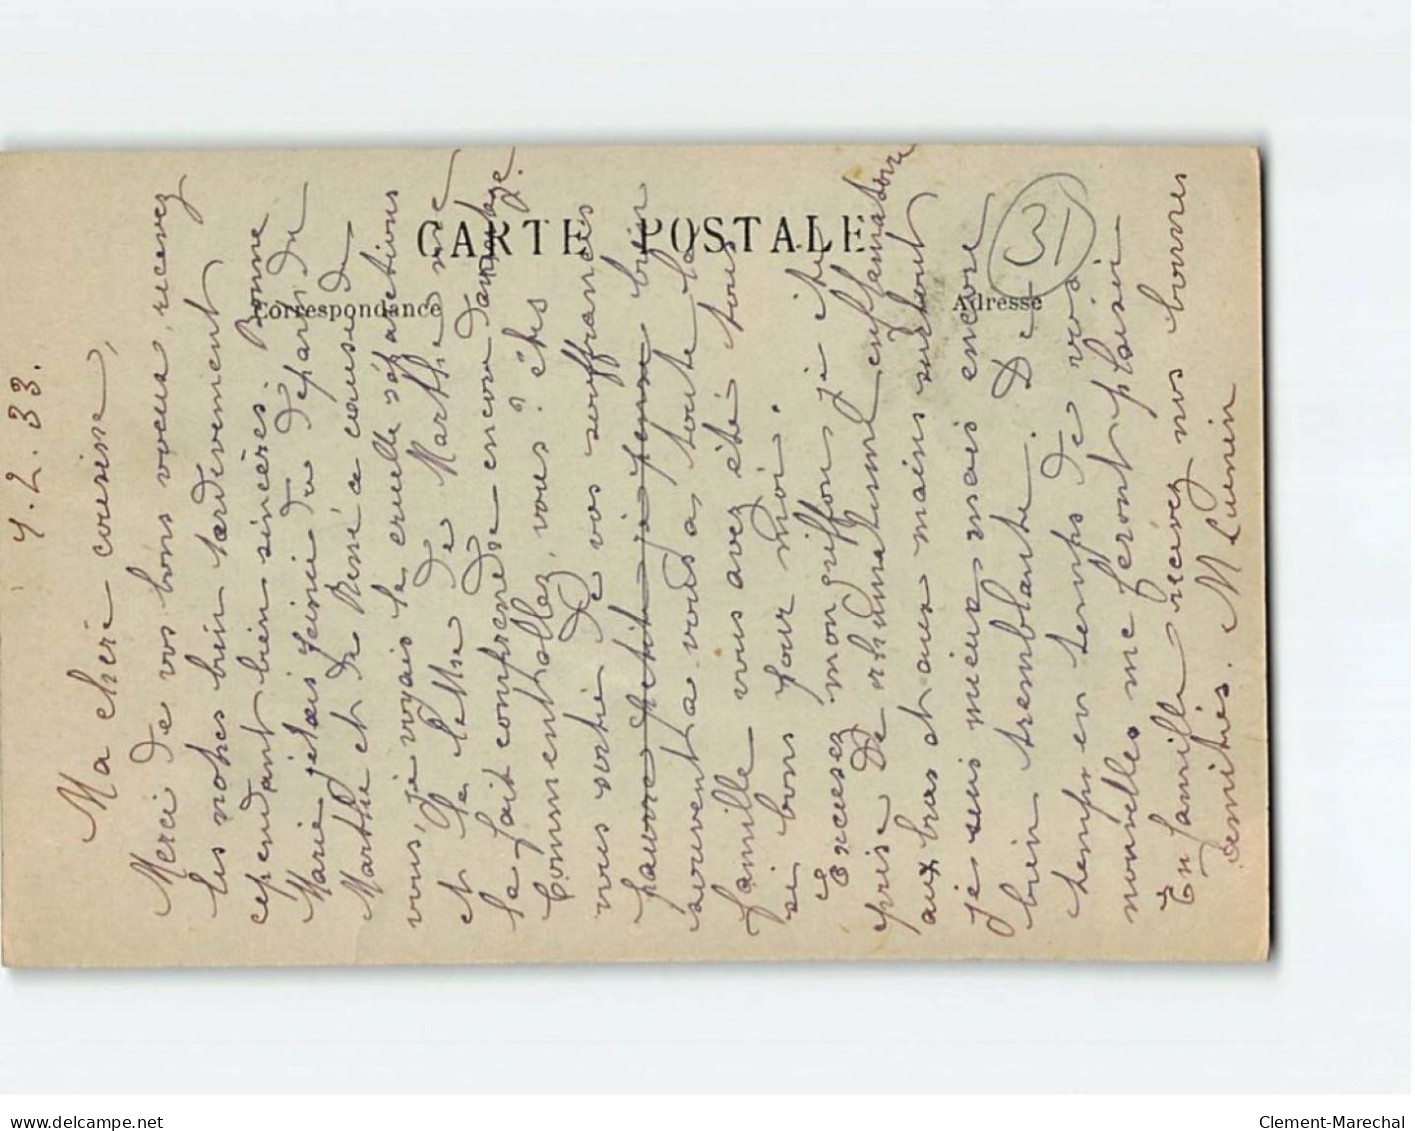 CARTE POSTALE
Correspondance
Adresse
31
4.2.33.
Ma chère cousine,
Merci de vos bons vœux, recevez
les notres bien tardivement
cependant bien sincères. Bonne
Marie j'étais peinée du départ de
Marthe et de René a cause de
vous, je voyais la cruelle séparations
et la lettre de Marthe me
le fait comprendre encore davantage.
Comment allez vous? êtes
vous sortie de vos souffrances
pauvre petite je pense bien
souvent a vous a toute la
famille vous avez été tous
si bons pour moi.
Excusez mon griffon, je été
prise de rhumatisme enflamatoire
aux bras et aux mains surtout
je suis mieux mais encore
bien tremblante. De
temps en temps de vos
nouvelles me feront plaisir
En famille recevez nos bonnes
amitiés. M